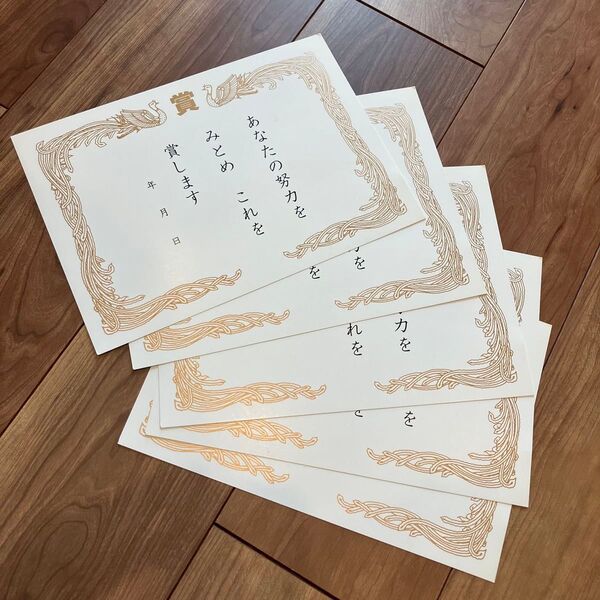 賞
あなたの努力を
みとめ これを
賞します
年 月 日
を
を
力を
れを
を